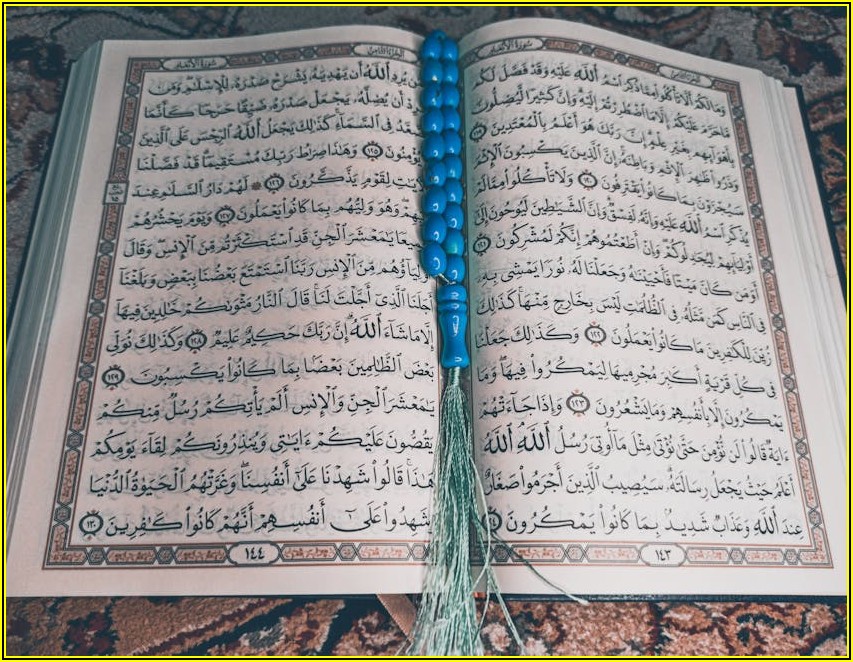 الجزء الثامن
سورة الأنعام
وَمَا لَكُمْ أَلَّا تَأْكُلُوا۟ مِمَّا ذُكِرَ ٱسْمُ ٱللَّهِ عَلَيْهِ وَقَدْ فَصَّلَ لَكُم
مَّا حَرَّمَ عَلَيْكُمْ إِلَّا مَا ٱضْطُرِرْتُمْ إِلَيْهِ وَإِنَّ كَثِيرًا لَّيُضِلُّونَ
بِأَهْوَآئِهِم بِغَيْرِ عِلْمٍ إِنَّ رَبَّكَ هُوَ أَعْلَمُ بِٱلْمُعْتَدِينَ ١١٩
وَذَرُوا۟ ظَـٰهِرَ ٱلْإِثْمِ وَبَاطِنَهُۥٓ إِنَّ ٱلَّذِينَ يَكْسِبُونَ ٱلْإِثْمَ
سَيُجْزَوْنَ بِمَا كَانُوا۟ يَقْتَرِفُونَ ١٢٠ وَلَا تَأْكُلُوا۟ مِمَّا لَمْ
يُذْكَرِ ٱسْمُ ٱللَّهِ عَلَيْهِ وَإِنَّهُۥ لَفِسْقٌ وَإِنَّ ٱلشَّيَـٰطِينَ لَيُوحُونَ إِلَىٰٓ
أَوْلِيَآئِهِمْ لِيُجَـٰدِلُوكُمْ وَإِنْ أَطَعْتُمُوهُمْ إِنَّكُمْ لَمُشْرِكُونَ ١٢١
أَوَمَن كَانَ مَيْتًا فَأَحْيَيْنَـٰهُ وَجَعَلْنَا لَهُۥ نُورًا يَمْشِى بِهِۦ
فِى ٱلنَّاسِ كَمَن مَّثَلُهُۥ فِى ٱلظُّلُمَـٰتِ لَيْسَ بِخَارِجٍ مِّنْهَا كَذَٰلِكَ
زُيِّنَ لِلْكَـٰفِرِينَ مَا كَانُوا۟ يَعْمَلُونَ ١٢٢ وَكَذَٰلِكَ جَعَلْنَا
فِى كُلِّ قَرْيَةٍ أَكَـٰبِرَ مُجْرِمِيهَا لِيَمْكُرُوا۟ فِيهَا وَمَا
يَمْكُرُونَ إِلَّا بِأَنفُسِهِمْ وَمَا يَشْعُرُونَ ١٢٣ وَإِذَا جَآءَتْهُمْ
ءَايَةٌ قَالُوا۟ لَن نُّؤْمِنَ حَتَّىٰ نُؤْتَىٰ مِثْلَ مَآ أُوتِىَ رُسُلُ ٱللَّهِ ٱللَّهُ
أَعْلَمُ حَيْثُ يَجْعَلُ رِسَالَتَهُۥ سَيُصِيبُ ٱلَّذِينَ أَجْرَمُوا۟ صَغَارٌ
عِندَ ٱللَّهِ وَعَذَابٌ شَدِيدٌۢ بِمَا كَانُوا۟ يَمْكُرُونَ
١٤٣
الجزء الثامن
سورة الأنعام
يُرِدِ ٱللَّهُ أَن يَهْدِيَهُۥ يَشْرَحْ صَدْرَهُۥ لِلْإِسْلَـٰمِ وَمَن
يُرِدْ أَن يُضِلَّهُۥ يَجْعَلْ صَدْرَهُۥ ضَيِّقًا حَرَجًا كَأَنَّمَا
يَصَّعَّدُ فِى ٱلسَّمَآءِ كَذَٰلِكَ يَجْعَلُ ٱللَّهُ ٱلرِّجْسَ عَلَى ٱلَّذِينَ
لَا يُؤْمِنُونَ ١٢٥ وَهَـٰذَا صِرَٰطُ رَبِّكَ مُسْتَقِيمًا قَدْ فَصَّلْنَا
ٱلْـَٔايَـٰتِ لِقَوْمٍ يَذَّكَّرُونَ ١٢٦ ۞ لَهُمْ دَارُ ٱلسَّلَـٰمِ عِندَ
رَبِّهِمْ وَهُوَ وَلِيُّهُم بِمَا كَانُوا۟ يَعْمَلُونَ ١٢٧ وَيَوْمَ يَحْشُرُهُمْ
جَمِيعًا يَـٰمَعْشَرَ ٱلْجِنِّ قَدِ ٱسْتَكْثَرْتُم مِّنَ ٱلْإِنسِ وَقَالَ
أَوْلِيَآؤُهُم مِّنَ ٱلْإِنسِ رَبَّنَا ٱسْتَمْتَعَ بَعْضُنَا بِبَعْضٍ وَبَلَغْنَآ
أَجَلَنَا ٱلَّذِىٓ أَجَّلْتَ لَنَا قَالَ ٱلنَّارُ مَثْوَىٰكُمْ خَـٰلِدِينَ فِيهَآ
إِلَّا مَا شَآءَ ٱللَّهُ إِنَّ رَبَّكَ حَكِيمٌ عَلِيمٌ ١٢٨ وَكَذَٰلِكَ نُوَلِّى
بَعْضَ ٱلظَّـٰلِمِينَ بَعْضًۢا بِمَا كَانُوا۟ يَكْسِبُونَ ١٢٩
يَـٰمَعْشَرَ ٱلْجِنِّ وَٱلْإِنسِ أَلَمْ يَأْتِكُمْ رُسُلٌ مِّنكُمْ
يَقُصُّونَ عَلَيْكُمْ ءَايَـٰتِى وَيُنذِرُونَكُمْ لِقَآءَ يَوْمِكُمْ
هَـٰذَا قَالُوا۟ شَهِدْنَا عَلَىٰٓ أَنفُسِنَا وَغَرَّتْهُمُ ٱلْحَيَوٰةُ ٱلدُّنْيَا
وَشَهِدُوا۟ عَلَىٰٓ أَنفُسِهِمْ أَنَّهُمْ كَانُوا۟ كَـٰفِرِينَ ١٣٠
١٤٤